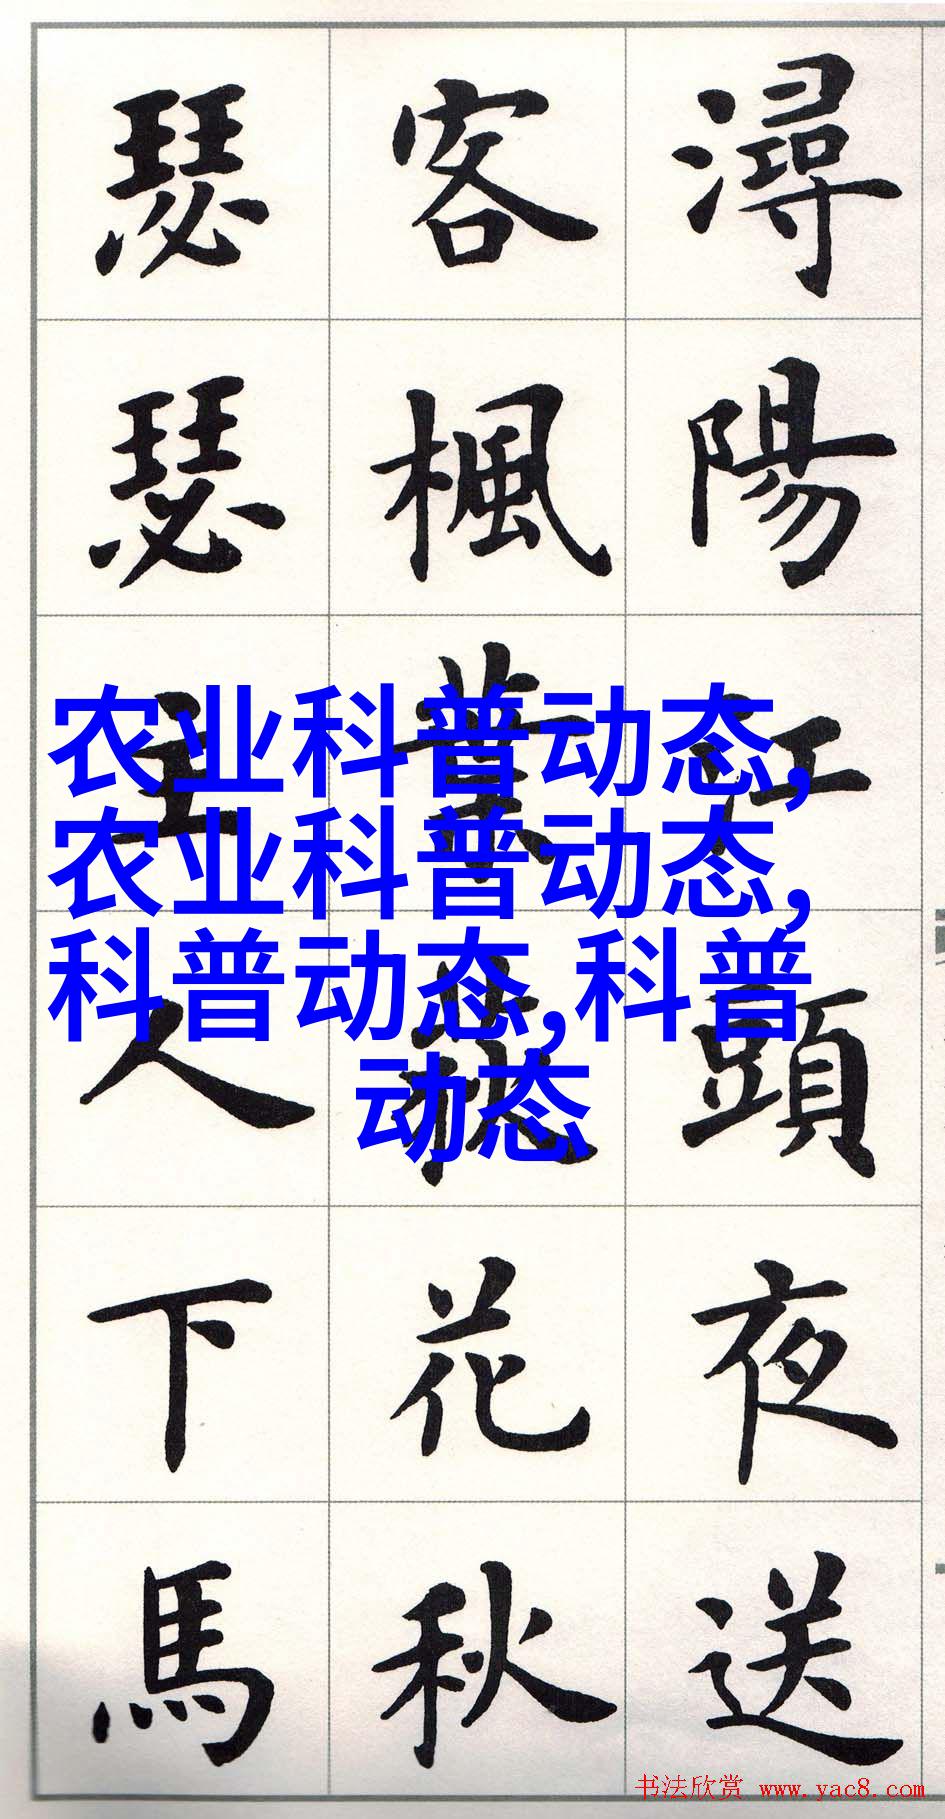 潯陽江頭夜送
客楓葉荻花秋
瑟瑟主人下馬
农业科普动态,
农业科普动态,
科普动态,科普
动态
书法欣赏 www.yac8.com